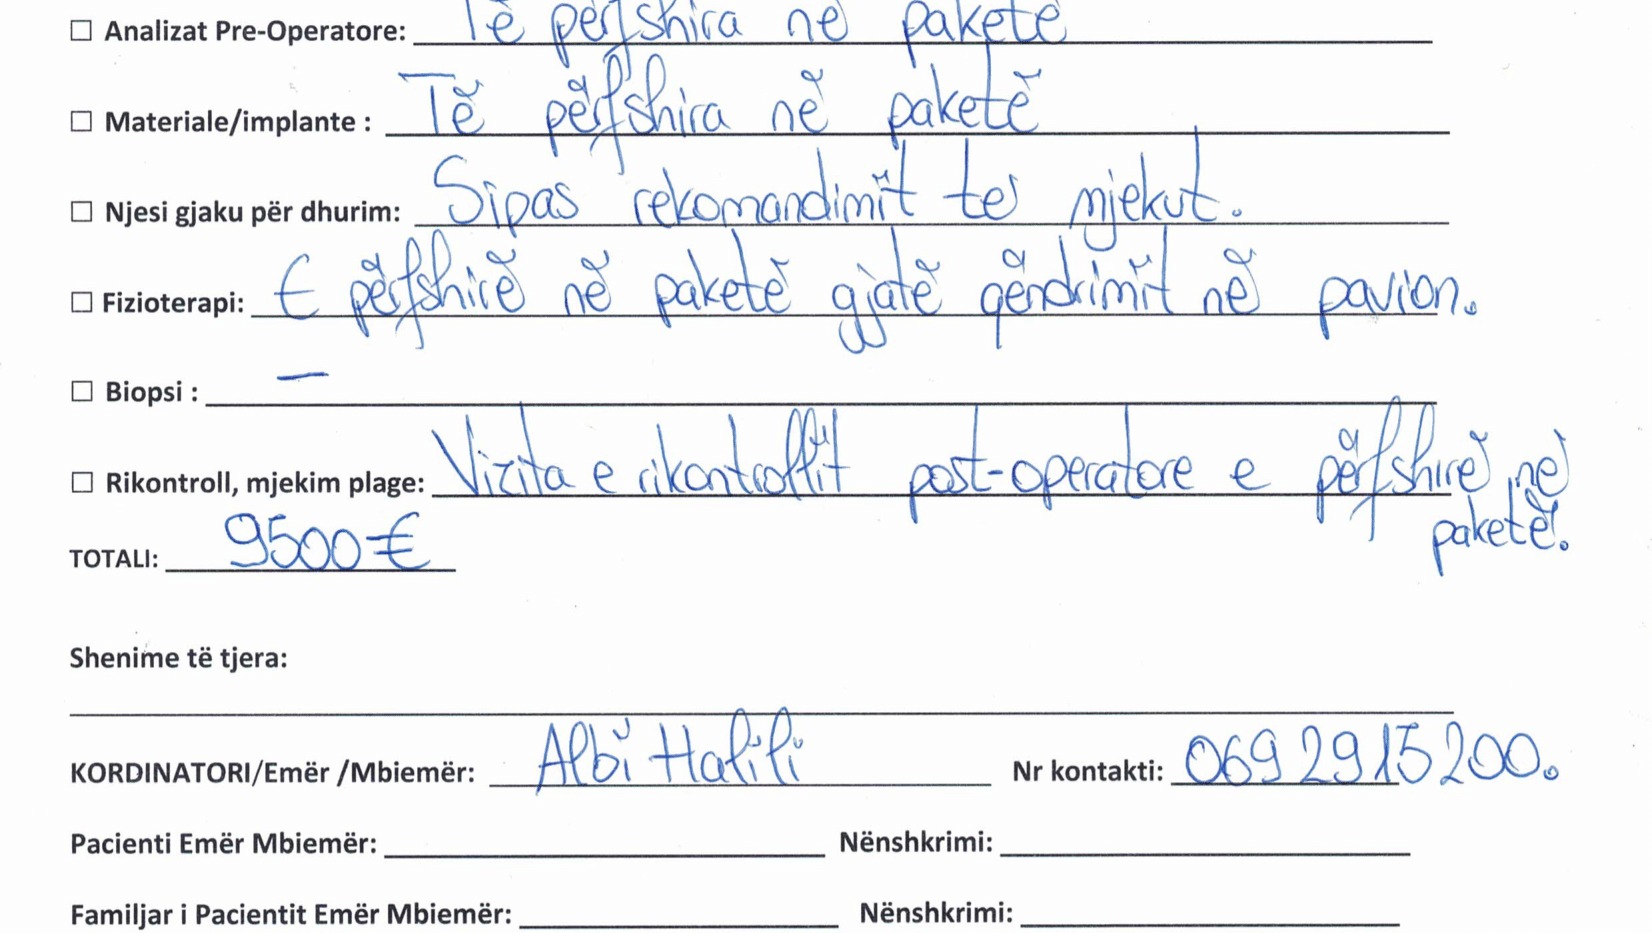 ☐ Analizat Pre-Operatore: Të përfshira në paketë
☐ Materiale/implante : Të përfshira në paketë
☐ Njesi gjaku për dhurim: Sipas rekomandimit të mjekut.
☐ Fizioterapi: E përfshirë në paketë gjatë qëndrimit në pavion.
☐ Biopsi : —
☐ Rikontroll, mjekim plage: Vizita e rikontrollit post-operatore e përfshirë në
paketë.
TOTALI: 9500€
Shenime të tjera:
KORDINATORI/Emër /Mbiemër: Albi Halili Nr kontakti: 069 29 15 200.
Pacienti Emër Mbiemër: Nënshkrimi:
Familjar i Pacientit Emër Mbiemër: Nënshkrimi: